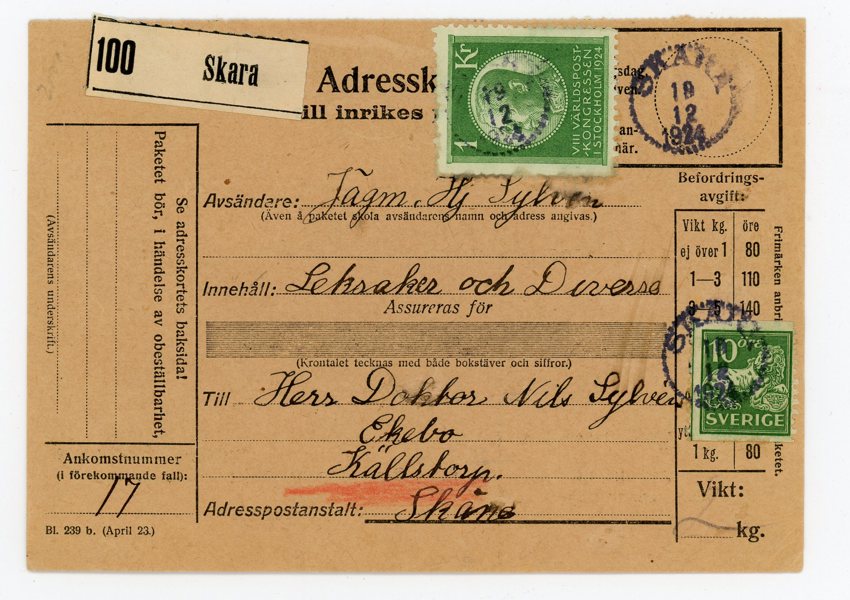 100 Skara
Adressk
ill inrikes
1 Kr
VIII VÄRLDSPOST-
KONGRESSEN
I STOCKHOLM 1924
19
12
SKARA
19
12
1924
Befordrings-
avgift:
Avsändare: Jägm. Hj Sylvén
(Även å paketet skola avsändarens namn och adress angivas.)
Innehåll: Leksaker och Diverse
Assureras för
(Krontalet tecknas med både bokstäver och siffror.)
Till Herr Doktor Nils Sylvén
Ekebo
Källstorp.
Adresspostanstalt: Skåne
Vikt kg. öre
ej över 1 80
1—3 110
3 5 140
Frimärken anbri
ketet.
SKARA
10 öre
SVERIGE
1 kg. 80
Vikt:
2 kg.
Se adresskortets baksida!
Paketet bör, i händelse av obeställbarhet,
(Avsändarens underskrift.)
Ankomstnummer
(i förekommande fall):
17
Bl. 239 b. (April 23.)